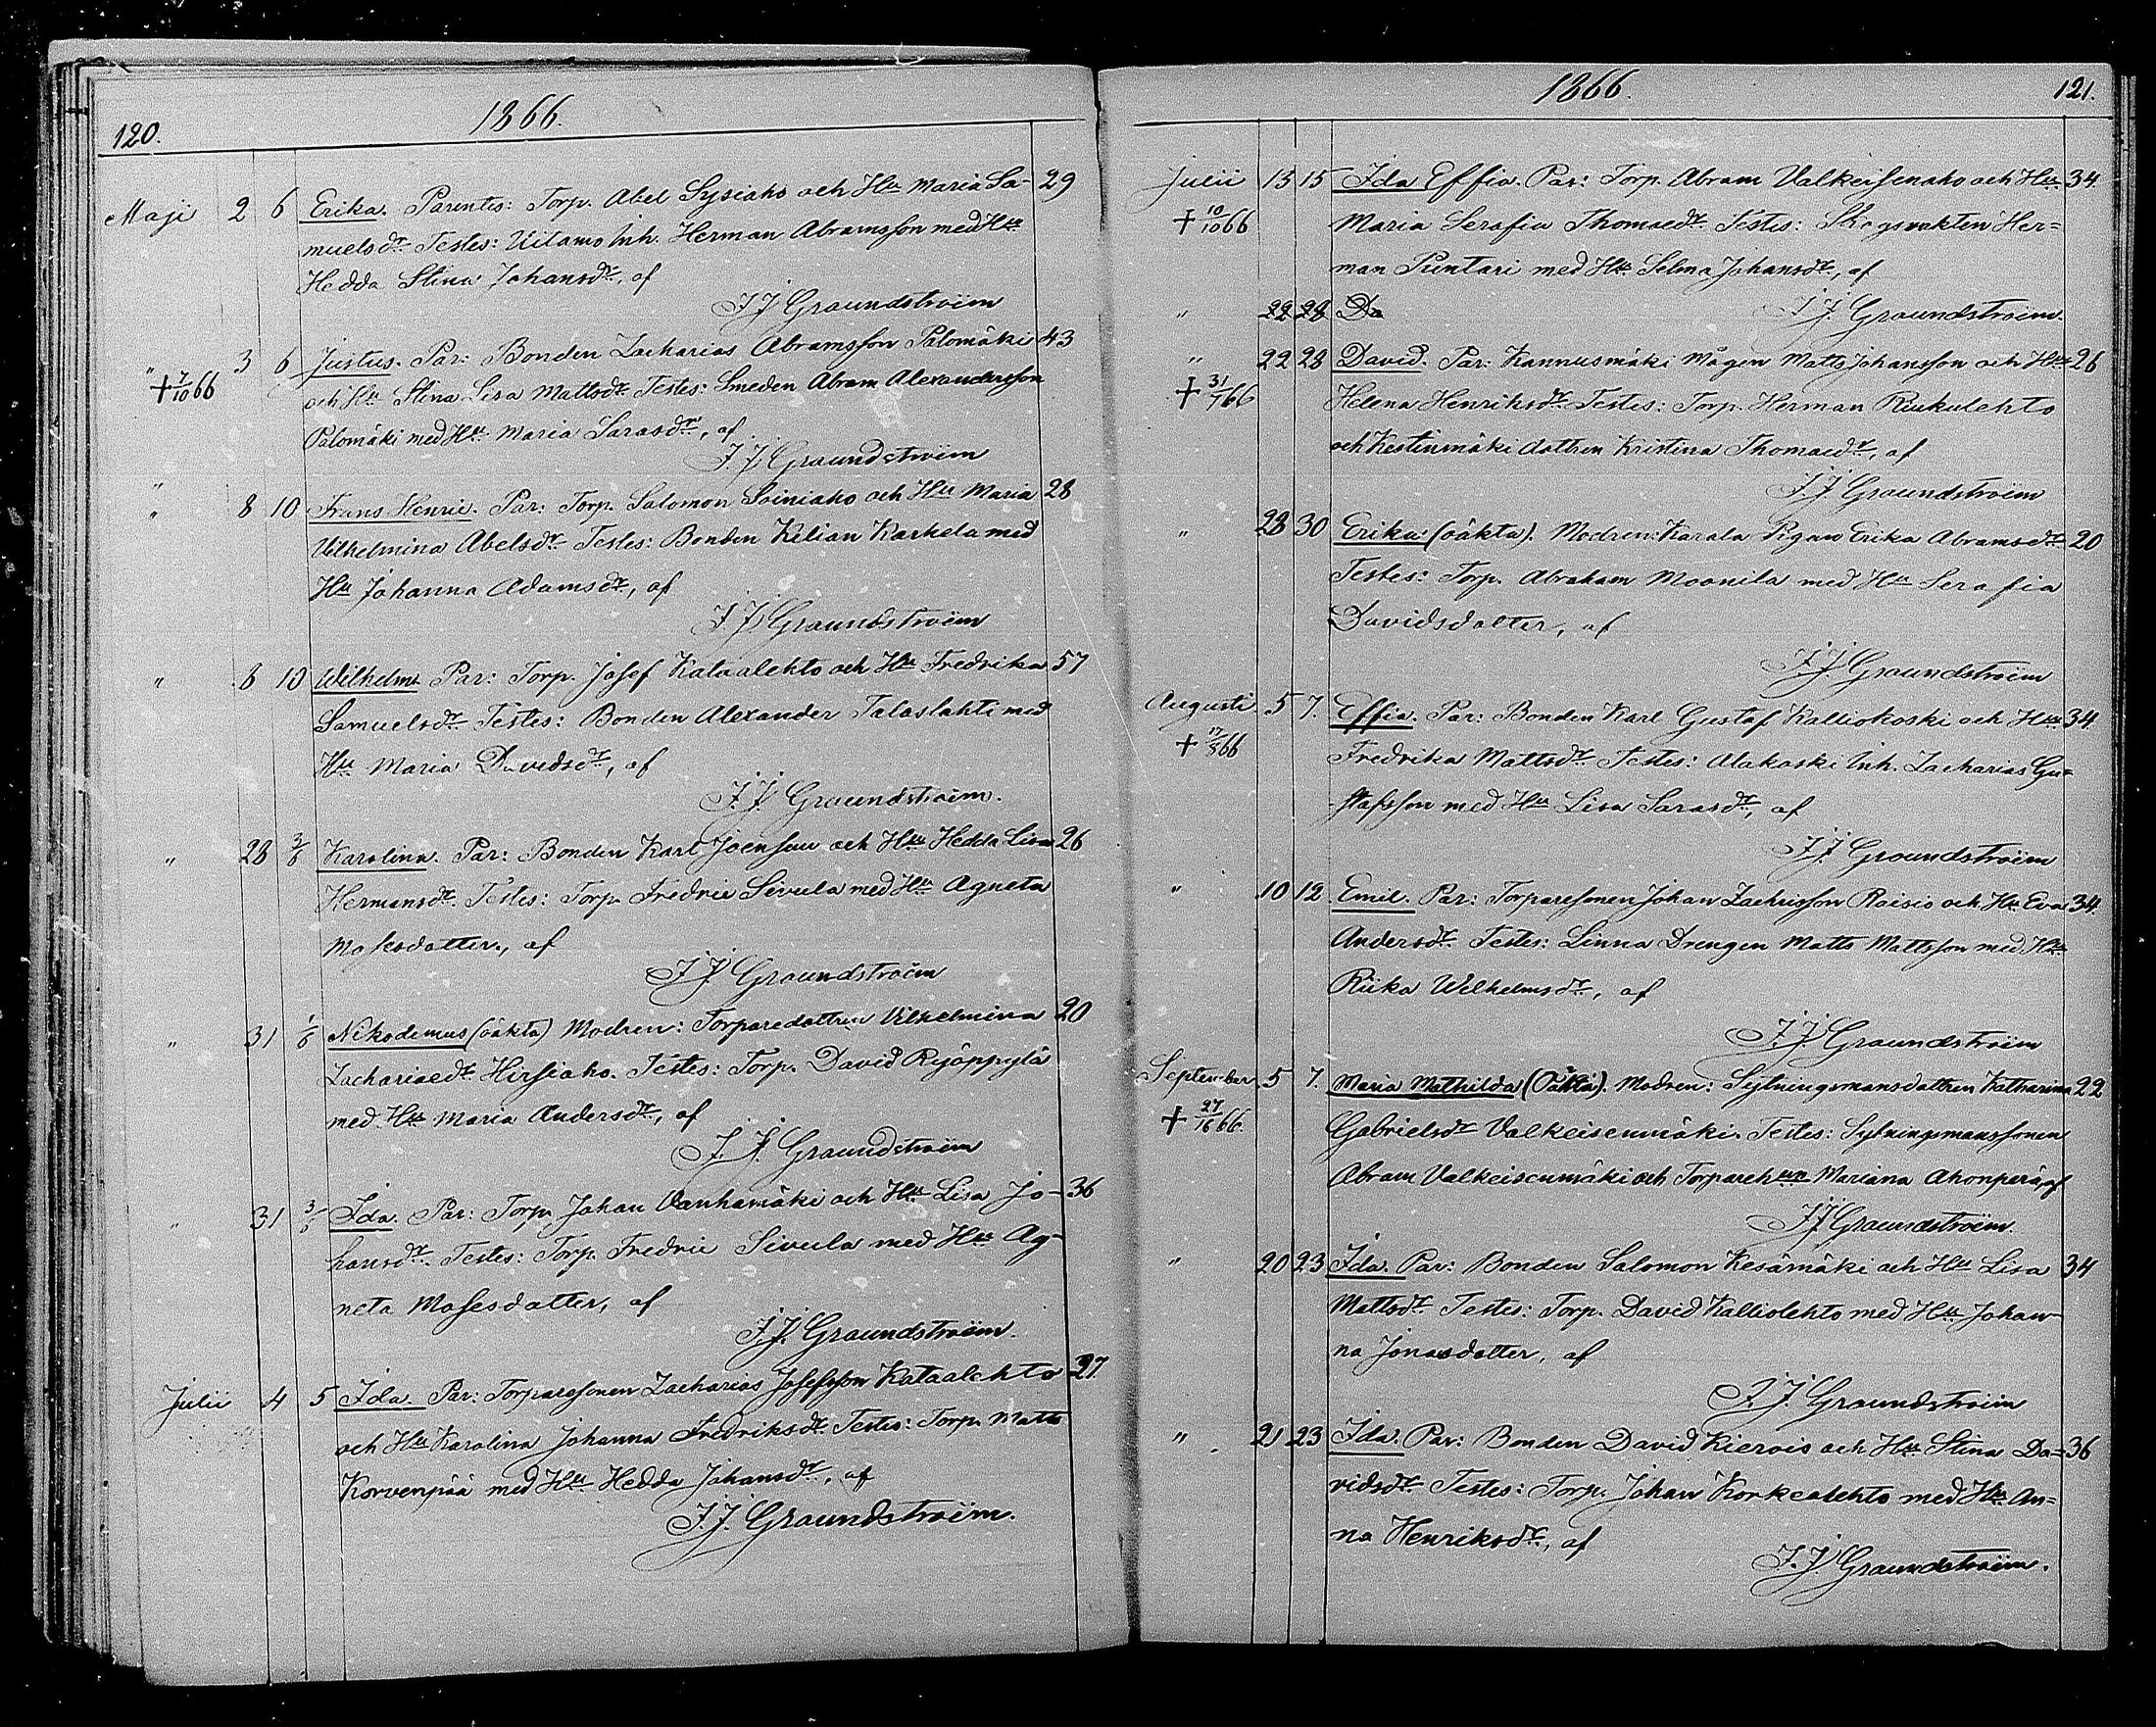 1866.
120.
Maji 2 6 Erika. Parentes: Torp. Abel Sysiaho och Hu Maria Sa- 29
muelsdr Testes: Uitamo Inh. Herman Abramsson med Hu
Hedda Stina Johansdr, af
J J Graundstroëm
" 3 6 Justus. Par: Bonden Zacharias Abramsson Palomäki 43
+ 7/10 66 och Hu Stina Lisa Mattsdr. Testes: Smeden Abram Alexandersson
Palomäki med Hu Maria Sarasdr, af
J. J. Graundstroëm
"
" 8 10 Frans Henric. Par: Torp. Salomon Soiniaho och Hu Maria 28
Vilhelmina Abelsdr Testes: Bonden Kilian Karhela med
Hu Johanna Adamsdr, af
J. J. Graundstroëm
" 8 10 Wilhelm. Par: Torp. Josef Kataalehto och Hu Fredrika 57
Samuelsdr Testes: Bonden Alexander Talaslahti med
Hu Maria Davidsdr, af
J. J. Graundstroëm.
" 28 3/6 Karolina. Par: Bonden Karl Joensuu och Hu Hedda Lisa 26
Hermansdr. Testes: Torp. Fredric Sivula med Hu Agneta
Mosesdatter, af
J J Graundstroëm
" 31 1/6 Nikodemus (oäkta) Modren: Torparedattren Vilhelmina 20
Zachariaedr Hirsiaho. Testes: Torp. David Ryöppylä
med Hu Maria Andersdr, af
J. J. Graundstroëm
" 31 3/6 Ida. Par: Torp. Johan Vanhamäki och Hu Lisa Jo- 36
hansdr. Testes: Torp. Fredric Sivula med Hu Ag-
neta Mosesdatter, af
J. J. Graundstroëm.
Julii 4 5 Ida. Par: Torparesonen Zacharias Josefsson Kataalehto 27
och Hu Karolina Johanna Fredriksdr. Testes: Torp. Matts
Korvenpää med Hu Hedda Johansdr, af
J. J. Graundstroëm.
1866.
121.
Julii 13 15 Ida Effia. Par: Torp. Abram Valkeisenaho och Hu 34.
+ 10/10 66 Maria Serafia Thomaedr. Testes: Skogsvakten Her=
man Puntari med Hu Selma Johansdr, af
" 22 28 Da J. J. Graundstroëm.
" 22 28 David. Par: Kannusmäki Mågen Matts Johansson och Hu 26
+ 31/7 66 Helena Henriksdr. Testes: Torp. Herman Riukulehto
och Kestinmäki dattren Kristina Thomaedr, af
J. J. Graundstroëm
" 28 30 Erika (oäkta). Modren: Karala Pigan Erika Abramsdr 20
Testes: Torp. Abraham Moonila med Hu Serafia
Davidsdatter, af
J. J. Graundstroëm
Augusti 5 7. Effia. Par: Bonden Karl Gustaf Kalliokoski och Hu 34.
+ 17/8 66 Fredrika Mattsdr. Testes: Alakoski Inh. Zacharias Gu=
stafsson med Hu Lisa Sarasdr, af
J. J. Graundstroëm
" 10 12 Emil. Par: Torparesonen Johan Zachrisson Raisio och Hu Eva 34.
Andersdr. Testes: Linna Drengen Matts Mattsson med Hu
Riika Wilhelmsdr, af
J. J. Graundstroëm
September 5 7. Maria Mathilda (Oäkta). Modren: Sytningsmansdattren Katharina 22
+ 27/16 66. Gabrielsdr Valkeisenmäki. Testes: Sytningsmanssonen
Abram Valkeisenmäki och Torparehun Mariana Ahonperä, af
J J Graundstroëm.
" 20 23 Ida. Par: Bonden Salomon Kesämäki och Hu Lisa 34
Mattsdr Testes: Torp. David Kalliolehto med Hu Johan-
na Jonasdatter, af
J. J. Graundstroëm
" 21 23 Ida. Par: Bonden David Kierois och Hu Stina Da= 36
vidsdr. Testes: Torp. Johan Korkealehto med Hu An=
na Henriksdr, af
J. J. Graundstroëm.